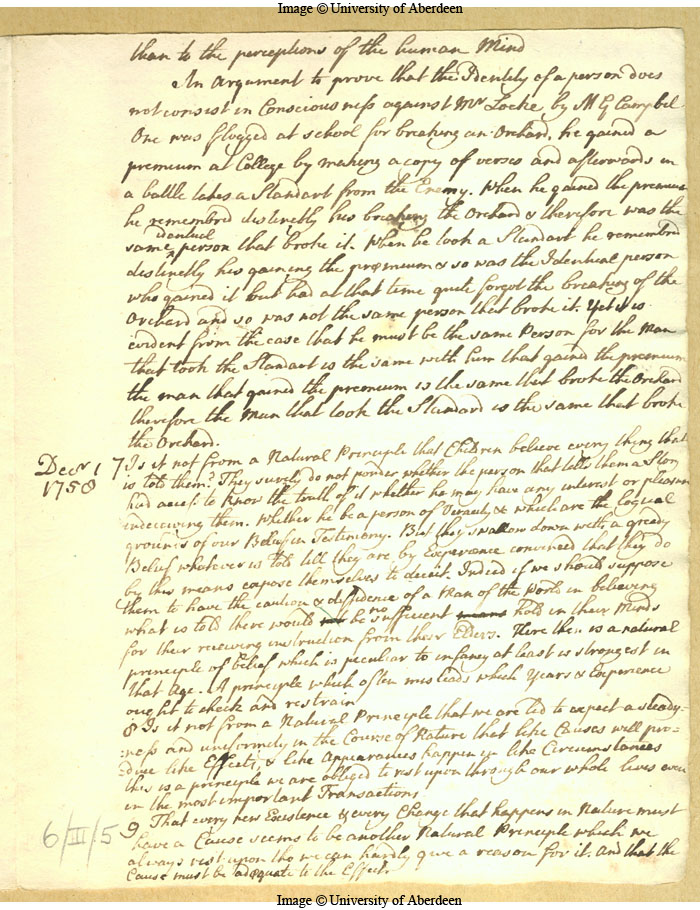 Image © University of Aberdeen
than to the perceptions of the human Mind
An Argument to prove that the Identity of a person does
not consist in Consciousness against Mr Locke by Mr G Campbel
One was flogged at school for breaking an Orchard, he gained a
premium at College by making a copy of verses and afterwards in
a battle takes a Standart from the Enemy. When he gained the premium
he remembred distinctly his breaking the Orchard & therefore was the
identical
same ^ person that broke it. When he took a Standart he remembred
distinctly his gaining the præmium & so was the Identical person
who gained it but had at that time quite forgot the breaking of the
Orchard and so was not the same person that broke it. Yet it is
evident from the case that he must be the same Person for the Man
that took the Standart is the same with him that gained the premium
the man that gained the premium is the same that broke the Orchard
therefore the Man that took the Standard is the same that broke
the Orchard.
Decr 1 1758
7. Is it not from a Natural Principle that Children believe every thing that
is told them? They surely do not ponder whether the person that tells them a Story
had access to know the truth of it whether he may have any interest or pleasure
in deceiving them. Whether he be a person of Veracity & which are the
grounds of our Belief in Testimony. But they swallow down with a greedy
Belief whatever is told till they are by Experience convinced that they do
by this means expose themselves to deceit. Indeed if we should suppose
them to have the caution & diffidence of a Man of the World in believing
no
what is told there would not be sufficient means hold in their Minds
for their receiving instruction from their Elders. Here then is a natural
principle of belief which is peculiar to infancy at least is strongest in
that Age. A principle which often misleads which Years & Experience
ought to check and restrain
8 Is it not from a Natural Principle that we are led to expect a steady=
=ness and uniformity in the Course of Nature that like Causes will pro=
=duce like Effects, & like Appearances happen in like Circumstances
this is a principle we are obliged to rest upon through our whole lives even
in the most important Transactions
9 That every new Existence & every Change that happens in Nature must
have a Cause seems to be another Natural Principle which we
always rest upon tho we can hardly give a reason for it. And that the
Cause must be adequate to the Effect.
6/III/5
Image © University of Aberdeen